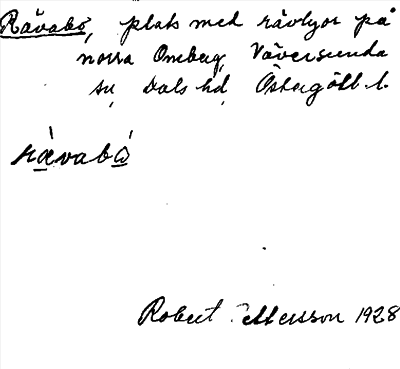 Rävabo, plats med rävlyor på
norra Omberg, Väversunda
sn, Dals hd, Östergötl. l.
rävabo
Robert Pettersson 1928